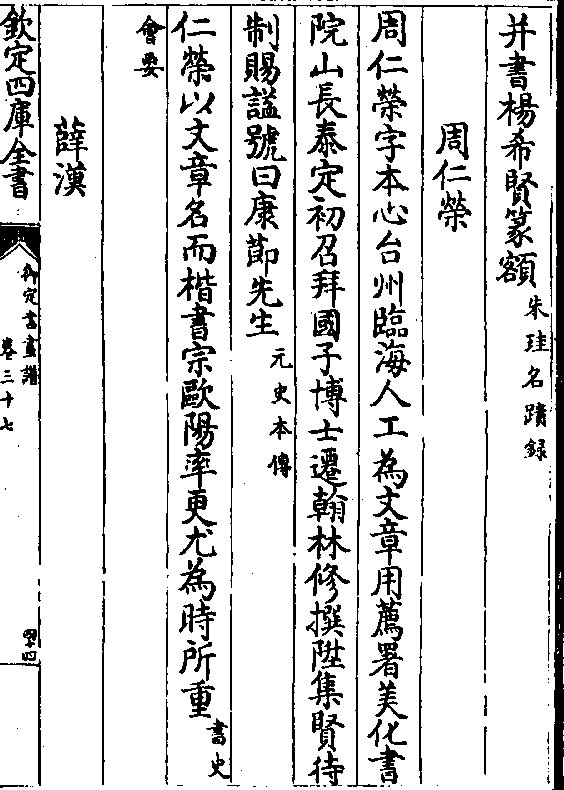 并書楊希賢篆額朱珪名蹟録
周仁榮
周仁榮字本心台州臨海人工為文章用薦署美化書
院山長泰定初召拜國子博士遷翰林修撰陞集賢待
制賜諡號曰康節先生元史本傳
仁榮以文章名而楷書宗歐陽率更尤為時所重書史
會要
薛漢
欽定四庫全書
御定書畫譜
卷三十七
四十四